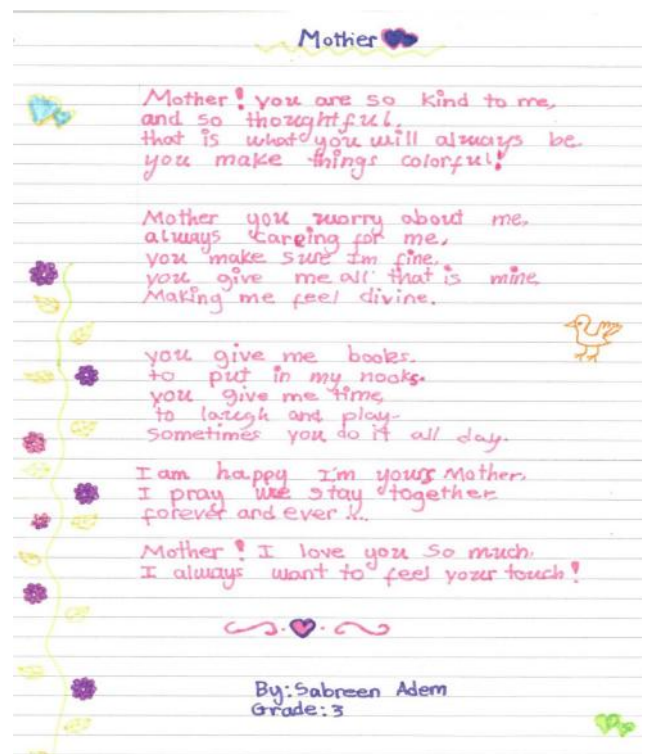 Mother
Mother! you are so kind to me,
and so thoughtful.
that is what you will always be
you make things colorful!
Mother you worry about me,
always careing for me,
you make sure Im fine.
you give me all that is mine
Making me feel divine.
you give me books.
to put in my nooks.
you give me time,
to laugh and play-
Sometimes you do it all day.
I am happy I'm yours Mother.
I pray we stay together
forever and ever
Mother! I love you so much.
I always want to feel your touch!
By: Sabreen Adem
Grade: 3